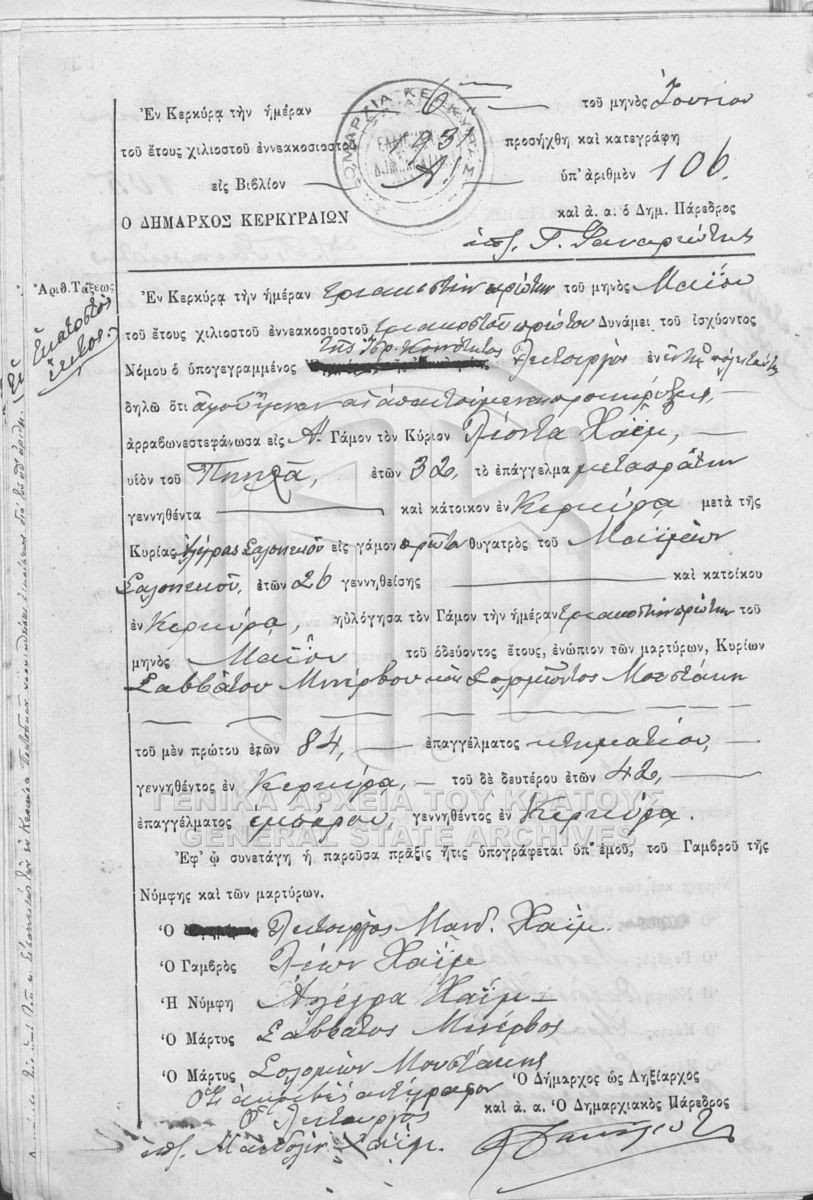 Ἐν Κερκύρᾳ τὴν ἡμέραν 6 τοῦ μηνὸς Ἰουνίου
τοῦ ἔτους χιλιοστοῦ ἐννεακοσιοστοῦ 1931 προσήχθη καὶ κατεγράφη
εἰς Βιβλίον Α! ὑπ' ἀριθμὸν 106.
Ο ΔΗΜΑΡΧΟΣ ΚΕΡΚΥΡΑΙΩΝ καὶ ἀ. α. ὁ Δημ. Πάρεδρος
ὑπ. Γ. Φαναριώτης
Ἀριθ. Τάξεως
Ἑκατοστὸς
ἕκτος.
Ἐν Κερκύρᾳ τὴν ἡμέραν τριακοστὴν πρώτην τοῦ μηνὸς Μαΐου
τοῦ ἔτους χιλιοστοῦ ἐννεακοσιοστοῦ τριακοστοῦ πρώτου Δυνάμει τοῦ ἰσχύοντος
τῆς Ἰσρ. Κοινότητος
Νόμου ὁ ὑπογεγραμμένος Λειτουργὸς
δηλῶ ὅτι ἀπαιτούμεναι προκηρύξεις,
ἀρραβωνεστεφάνωσα εἰς Α! Γάμον τὸν Κύριον Λέοντα Χαΐμ,
υἱὸν τοῦ ἐτῶν 32, τὸ ἐπάγγελμα μεταπράτην
γεννηθέντα καὶ κάτοικον ἐν Κερκύρᾳ μετὰ τῆς
Κυρίας Ἀλέγρας Σαλονικιοῦ εἰς γάμον πρῶτον θυγατρὸς τοῦ
Σαλονικιοῦ, ἐτῶν 26 γεννηθείσης καὶ κατοίκου
ἐν Κερκύρᾳ, ηὐλόγησα τὸν Γάμον τὴν ἡμέραν τριακοστὴν πρώτην τοῦ
μηνὸς Μαΐου τοῦ ὁδεύοντος ἔτους, ἐνώπιον τῶν μαρτύρων, Κυρίων
Σαββάτου Μινέρβου καὶ Σολομῶντος Μουστάκη
τοῦ μὲν πρώτου ἐτῶν 84, ἐπαγγέλματος κτηματίου,
γεννηθέντος ἐν Κερκύρᾳ, τοῦ δὲ δευτέρου ἐτῶν 42,
ἐπαγγέλματος ἐμπόρου, γεννηθέντος ἐν Κερκύρᾳ.
ΓΕΝΙΚΑ ΑΡΧΕΙΑ ΤΟΥ ΚΡΑΤΟΥΣ
GENERAL STATE ARCHIVES
Ἐφ' ᾧ συνετάγη ἡ παροῦσα πρᾶξις ἥτις ὑπογράφεται ὑπ' ἐμοῦ, τοῦ Γαμβροῦ τῆς
Νύμφης καὶ τῶν μαρτύρων.
Ὁ Λειτουργὸς Μανδ. Χαΐμ.
Ὁ Γαμβρὸς Λέων Χαΐμ
Ἡ Νύμφη Ἀλέγρα Χαΐμ
Ὁ Μάρτυς Σάββατος Μινέρβος
Ὁ Μάρτυς Σολομὼν Μουστάκης
Ὅτι ἀκριβὲς ἀντίγραφον
Ὁ Λειτουργὸς
ὑπ. Μανδολὶν Χαΐμ.
Ὁ Δήμαρχος ὡς Ληξίαρχος
καὶ ἀ. α. Ὁ Δημαρχιακὸς Πάρεδρος